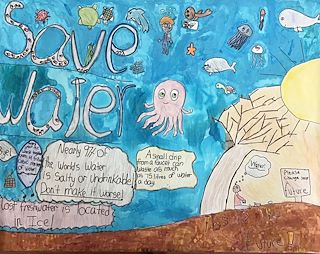 Save
Water
Bye!
Nearly 97% of
the World's Water
is Salty or Undrinkable
Don't make it worse!
A small drip
from a faucet can
waste as much
as 75 liters of water
a day.
Most freshwater is located
in Ice!
Please
Change our
future
future!